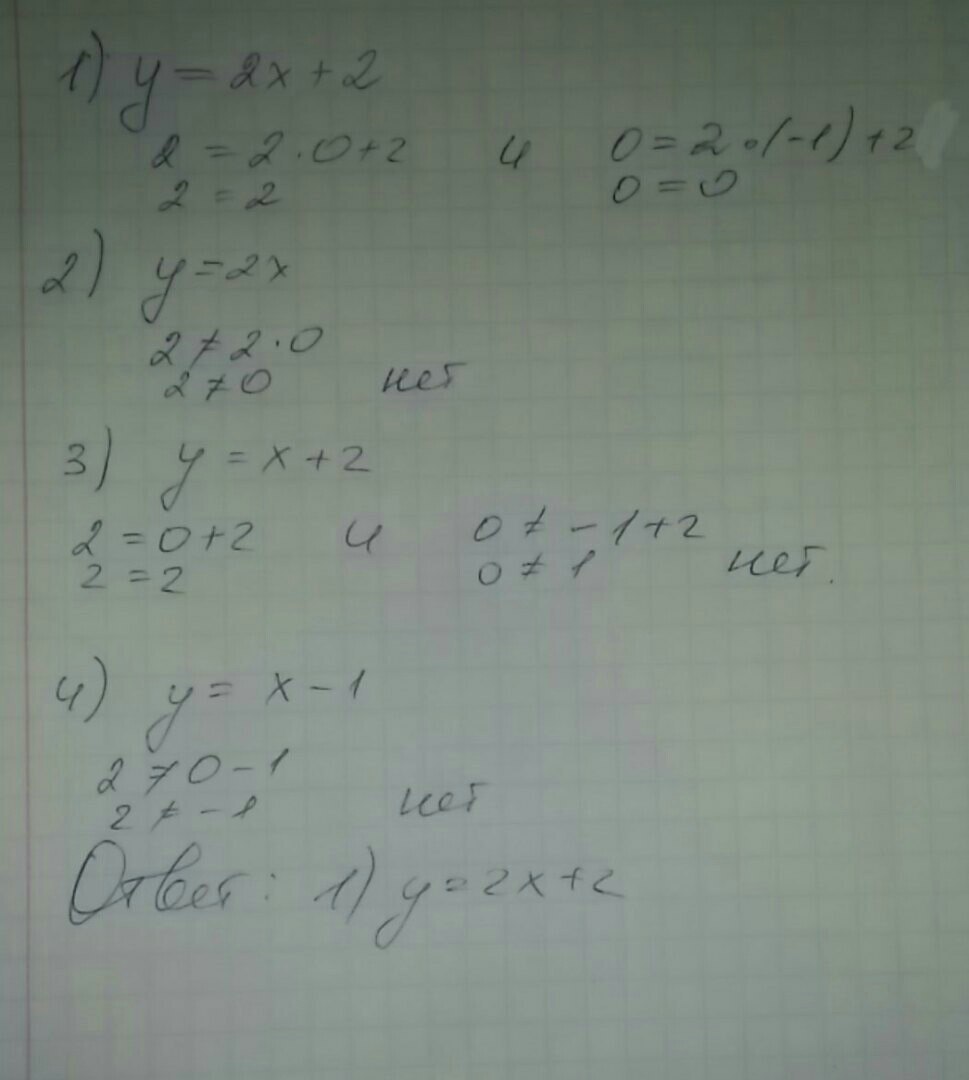 1) y = 2x + 2
2 = 2 · 0 + 2 и 0 = 2 · (-1) + 2
2 = 2 0 = 0
2) y = 2x
2 ≠ 2 · 0
2 ≠ 0 нет
3) y = x + 2
2 = 0 + 2 и 0 ≠ - 1 + 2
2 = 2 0 ≠ 1 нет.
4) y = x - 1
2 ≠ 0 - 1
2 ≠ - 1 нет
Ответ: 1) y = 2x + 2